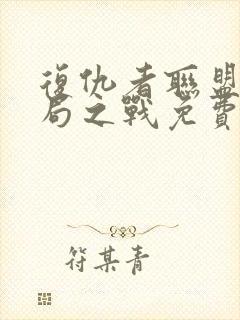 復仇者聯盟
局之戰免費
符某青